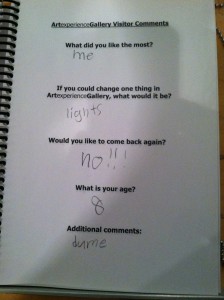 ArtexperienceGallery Visitor Comments
What did you like the most?
me
If you could change one thing in
ArtexperienceGallery, what would it be?
lights
Would you like to come back again?
no!!!
What is your age?
8
Additional comments:
dume